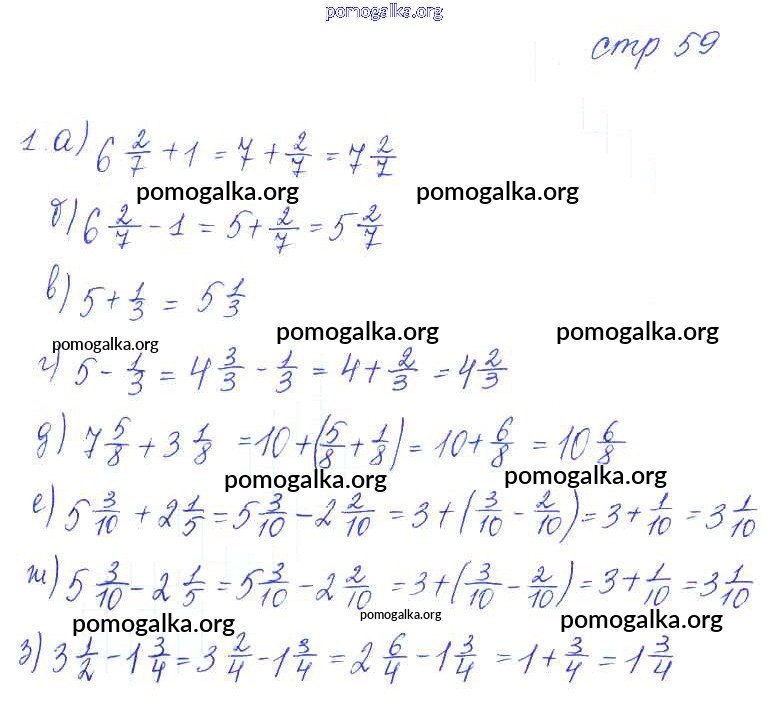 pomogalka.org
стр 59
1. а) 6 2/7 + 1 = 7 + 2/7 = 7 2/7
pomogalka.org pomogalka.org
б) 6 2/7 - 1 = 5 + 2/7 = 5 2/7
в) 5 + 1/3 = 5 1/3
pomogalka.org pomogalka.org pomogalka.org
г) 5 - 1/3 = 4 3/3 - 1/3 = 4 + 2/3 = 4 2/3
д) 7 5/8 + 3 1/8 = 10 + (5/8 + 1/8) = 10 + 6/8 = 10 6/8
pomogalka.org pomogalka.org
е) 5 3/10 + 2 1/5 = 5 3/10 - 2 2/10 = 3 + (3/10 - 2/10) = 3 + 1/10 = 3 1/10
ж) 5 3/10 - 2 1/5 = 5 3/10 - 2 2/10 = 3 + (3/10 - 2/10) = 3 + 1/10 = 3 1/10
pomogalka.org pomogalka.org pomogalka.org
з) 3 1/2 - 1 3/4 = 3 2/4 - 1 3/4 = 2 6/4 - 1 3/4 = 1 + 3/4 = 1 3/4